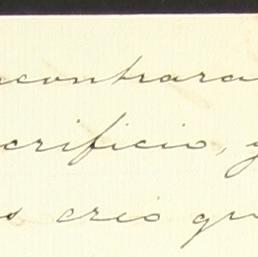 ncontrara
crificio, y
s creó qu